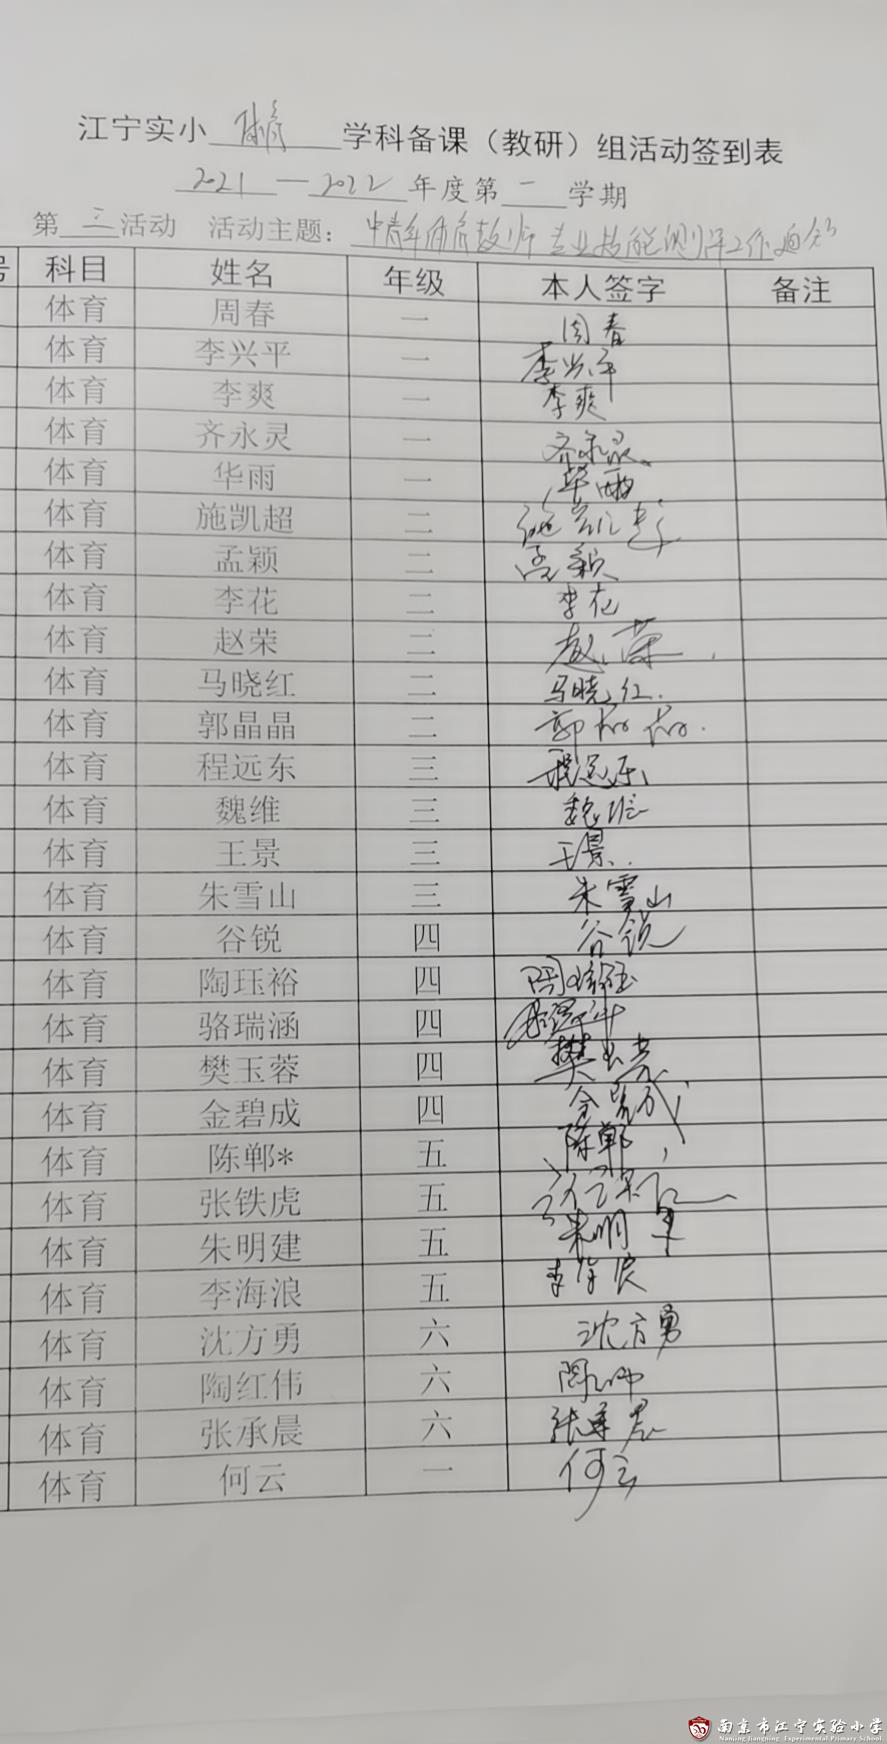 江宁实小 体育 学科备课（教研）组活动签到表
2021 — 2022 年度第 二 学期
第 三 活动 活动主题： 中青年体育教师专业技能测评工作通知
号 科目 姓名 年级 本人签字 备注
体育 周春 一 周春
体育 李兴平 一 李兴平
体育 李爽 一 李爽
体育 齐永灵 一 齐永灵
体育 华雨 一 华雨
体育 施凯超 二 施凯超
体育 孟颖 二 孟颖
体育 李花 二 李花
体育 赵荣 二 赵荣
体育 马晓红 二 马晓红
体育 郭晶晶 二 郭晶晶
体育 程远东 三 程远东
体育 魏维 三 魏维
体育 王景 三 王景
体育 朱雪山 三 朱雪山
体育 谷锐 四 谷锐
体育 陶珏裕 四
体育 骆瑞涵 四
体育 樊玉蓉 四 樊玉蓉
体育 金碧成 四 金碧成
体育 陈郸* 五 陈郸
体育 张铁虎 五
体育 朱明建 五 朱明
体育 李海浪 五 李海浪
体育 沈方勇 六 沈方勇
体育 陶红伟 六
体育 张承晨 六 张承晨
体育 何云 一 何云
南京市江宁实验小学
Nanjing Jiangning Experimental Primary School